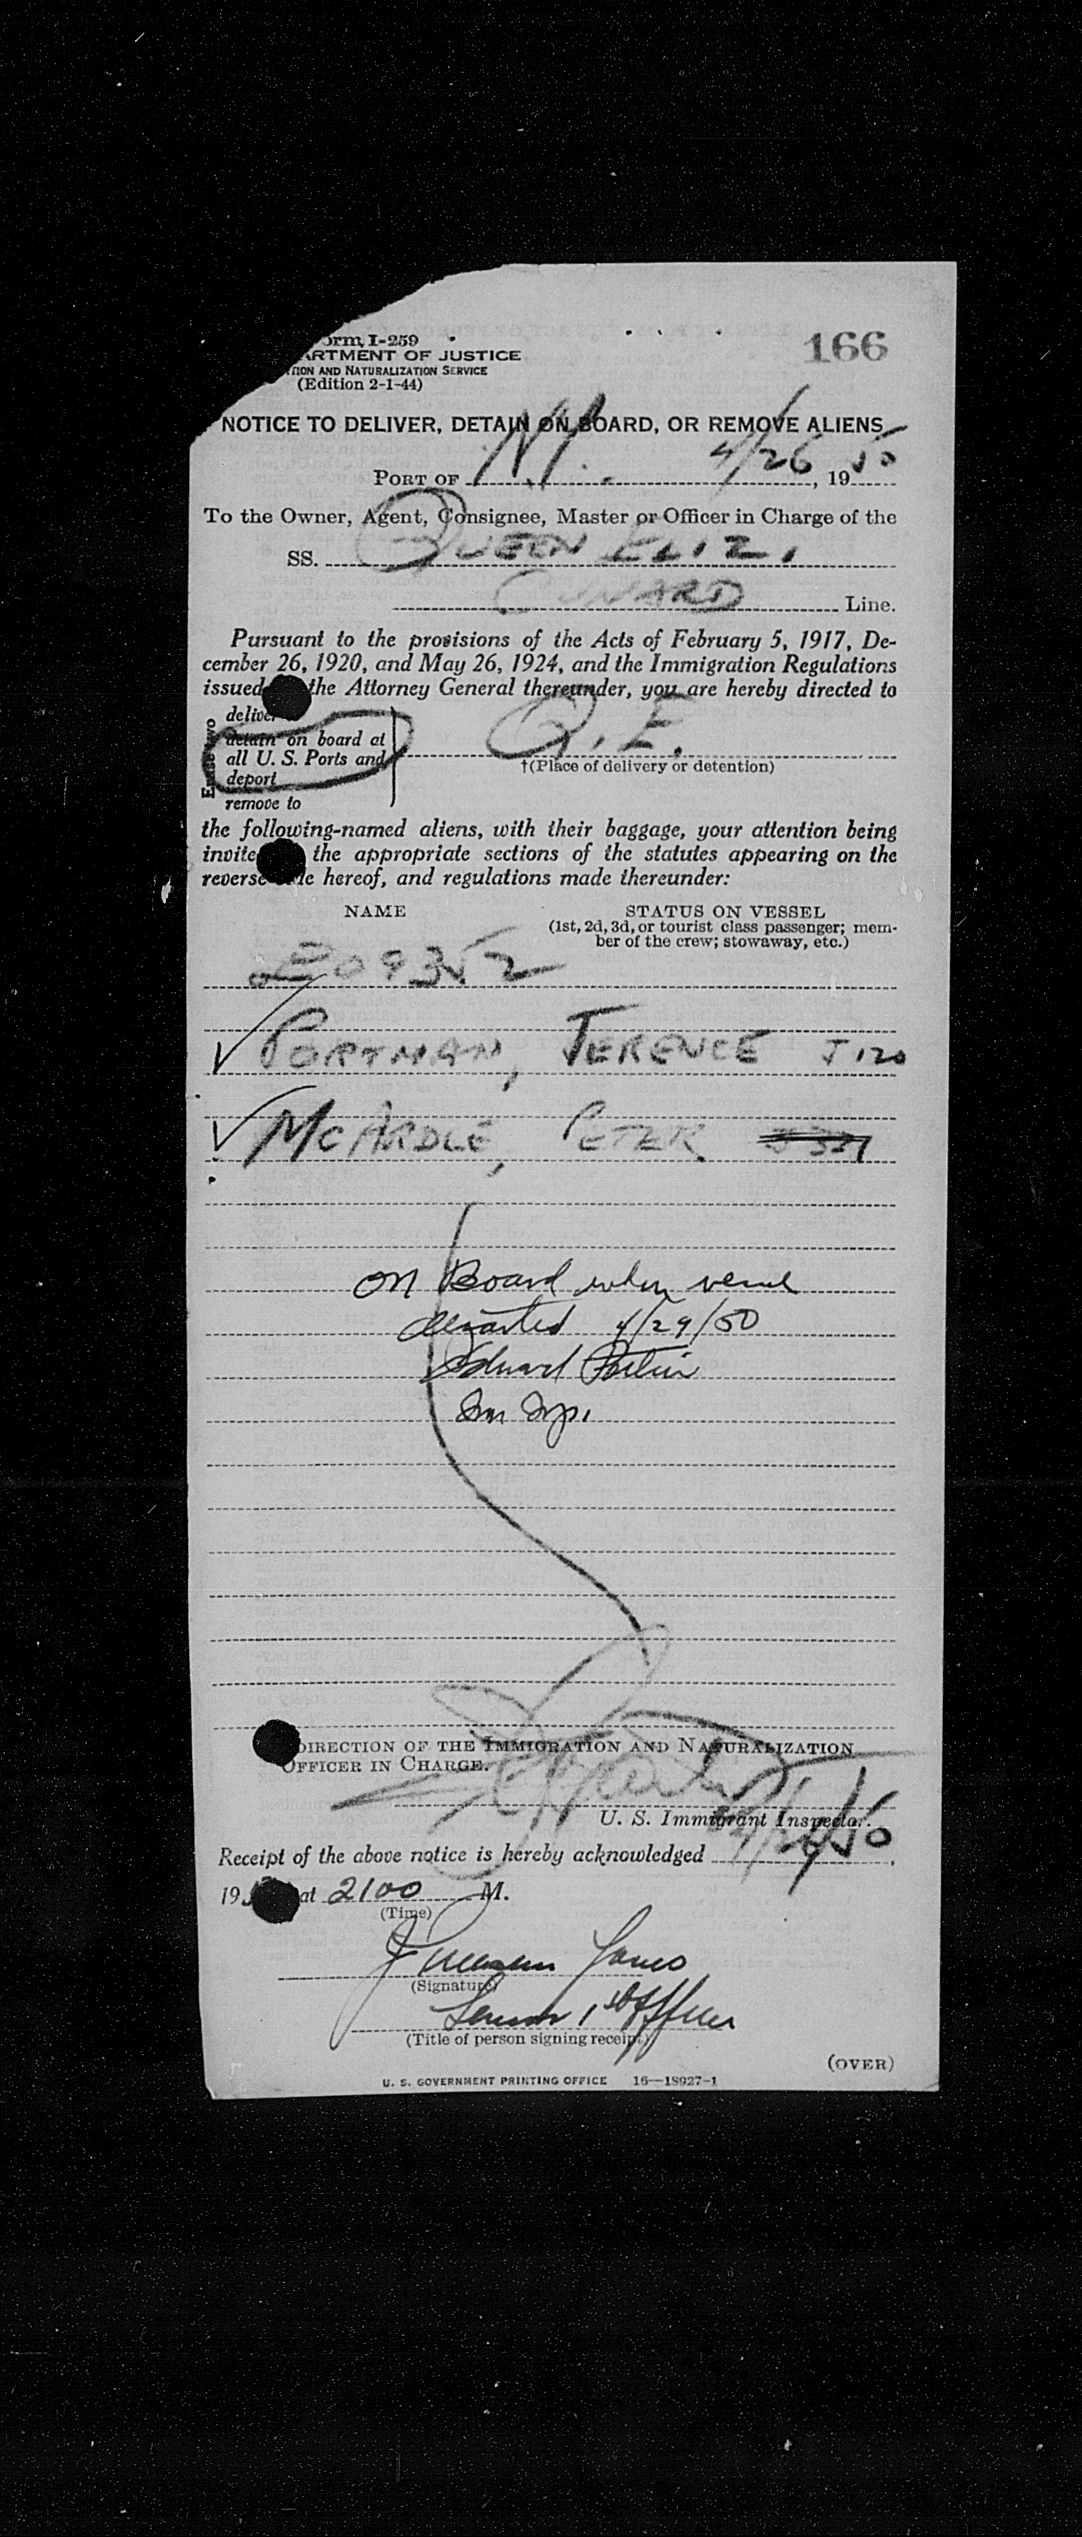 orm I-259
166
ARTMENT OF JUSTICE
TION AND NATURALIZATION SERVICE
(Edition 2-1-44)
NOTICE TO DELIVER, DETAIN ON BOARD, OR REMOVE ALIENS
PORT OF N.Y. 4/26, 1950
To the Owner, Agent, Consignee, Master or Officer in Charge of the
SS. QUEEN ELIZ.
CUNARD Line.
Pursuant to the provisions of the Acts of February 5, 1917, De-
cember 26, 1920, and May 26, 1924, and the Immigration Regulations
issued the Attorney General thereunder, you are hereby directed to
deliver
detain on board at
all U. S. Ports and
deport
remove to
Q.E.
†(Place of delivery or detention)
the following-named aliens, with their baggage, your attention being
invite the appropriate sections of the statutes appearing on the
reverse hereof, and regulations made thereunder:
NAME STATUS ON VESSEL
(1st, 2d, 3d, or tourist class passenger; mem-
ber of the crew; stowaway, etc.)
E09352
PORTMAN, TERENCE J120
MCARDLE, PETER
On Board when vessel
departed 4/29/50
Edward
Im Insp.
DIRECTION OF THE IMMIGRATION AND NATURALIZATION
OFFICER IN CHARGE.
U. S. Immigrant Inspector.
Receipt of the above notice is hereby acknowledged 4/26/50
19 at 2100 M.
(Time)
Jones
(Signature)
Senior 1st Officer
(Title of person signing receipt)
(OVER)
U. S. GOVERNMENT PRINTING OFFICE 16—18927-1